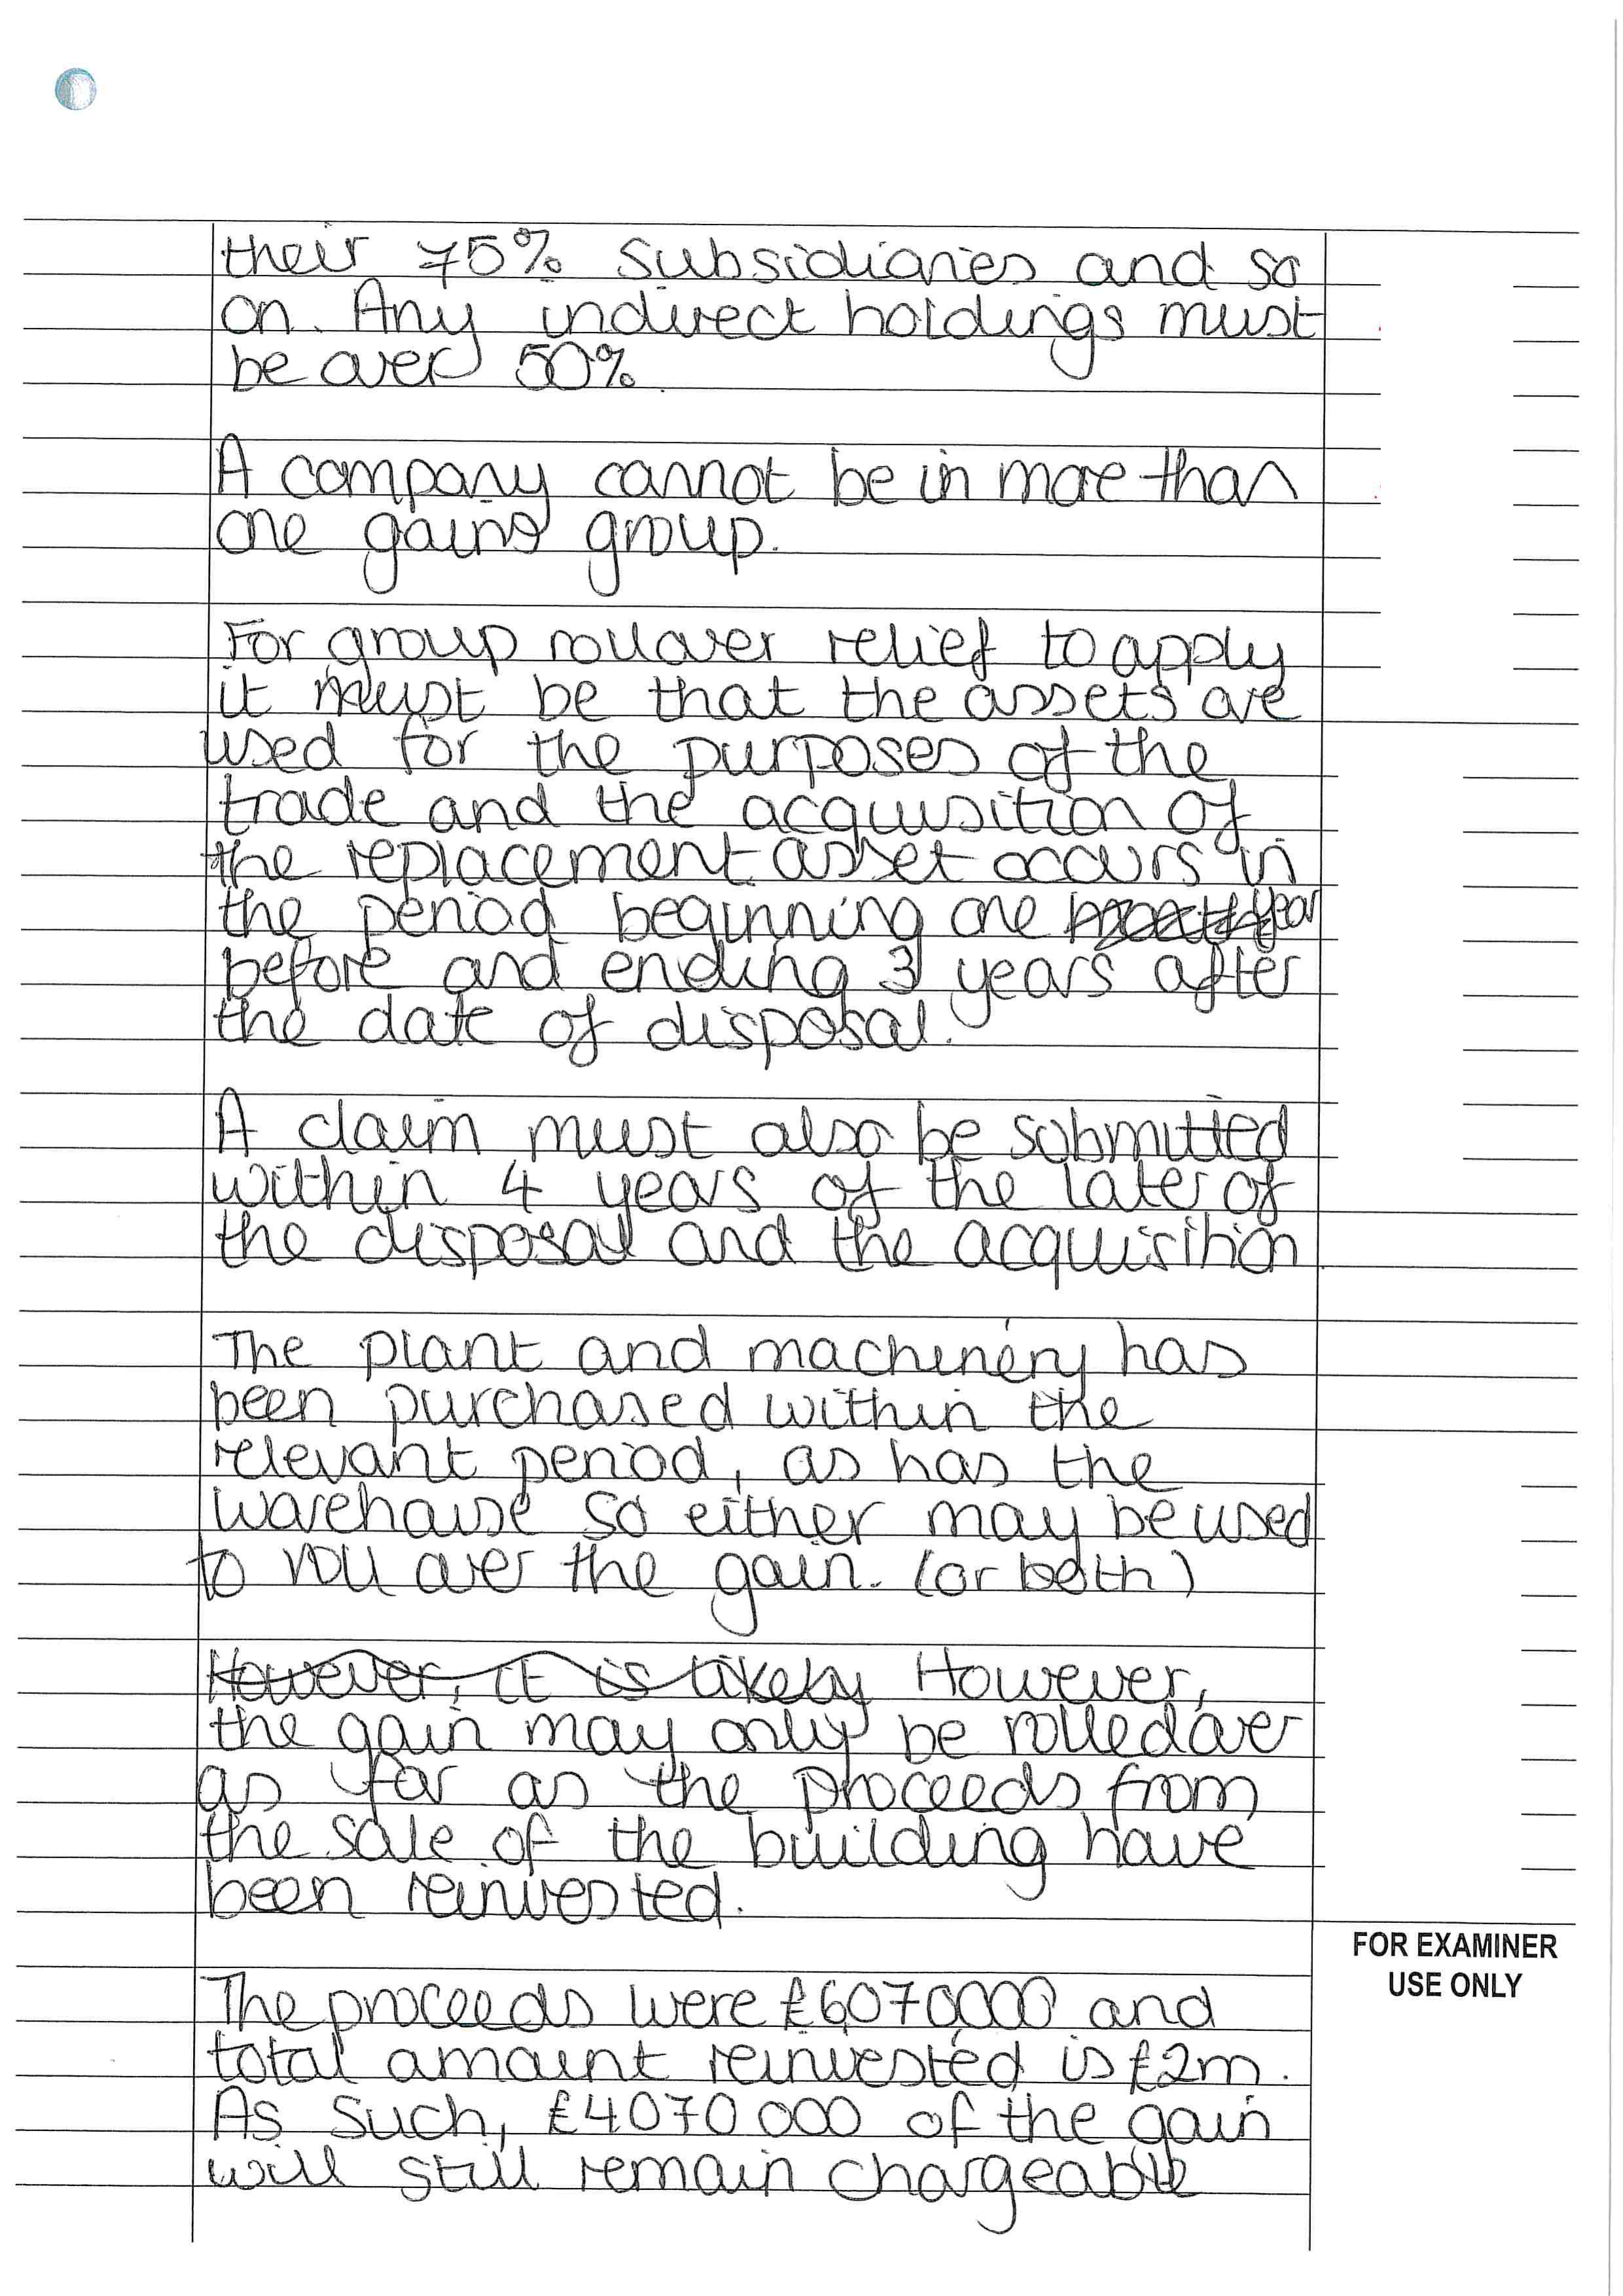 their 75% subsidiaries and so
on. Any indirect holdings must
be over 50%.
A company cannot be in more than
one gains group.
For group rollover relief to apply
it must be that the assets are
used for the purposes of the
trade and the acquisition of
the replacement asset occurs in
the period beginning one month year
before and ending 3 years after
the date of disposal.
A claim must also be submitted
within 4 years of the later of
the disposal and the acquisition.
The plant and machinery has
been purchased within the
relevant period, as has the
warehouse so either may be used
to roll over the gain. (or both)
However, it is likely However,
the gain may only be rolled over
as far as the proceeds from
the sale of the building have
been reinvested.
FOR EXAMINER
USE ONLY
The proceeds were £6,070,000 and
total amount reinvested is £2m.
As such, £4070000 of the gain
will still remain chargeable